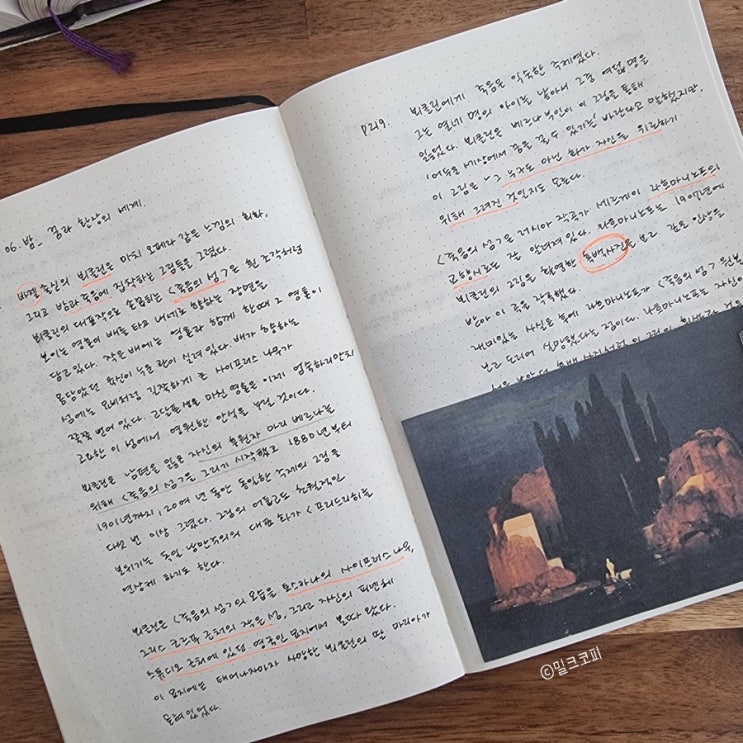 06. 밤_ 꿈과 환상의 세계.
바젤 출신의 뵈클린은 마치 오페라 같은 느낌의 회화,
그리고 밤과 죽음에 집착하는 그림들을 그렸다.
뵈클린의 대표작으로 손꼽히는 <죽음의 섬>은 흰 조각처럼
보이는 영혼이 배를 타고 내세로 향하는 장면을
담고 있다. 작은 배에는 영혼과 함께 한때 그 영혼이
몸담았던 육신이 누운 관이 실려 있다. 배가 향하는
섬에는 묘비처럼 길쭉하게 큰 사이프러스 나무가
쭉쭉 뻗어 있다. 고단한 생을 마친 영혼은 이제 엄숙하리만치
고요한 이 섬에서 영원한 안식을 누릴 것이다.
뵈클린은 남편을 잃은 자신의 후원자 마리 베르나를
위해 <죽음의 섬>을 그리기 시작했고 1880년부터
1901년까지, 20여 년 동안 동일한 주제의 그림을
다섯 번 이상 그렸다. 그림의 어둡고도 초월적인
분위기는 독일 낭만주의의 대표 화가 <프리드리히>를
연상케 하기도 한다.
뵈클린은 <죽음의 섬>의 모습을 토스카나의 사이프러스 나무,
그리스 코르푸 근처의 작은 섬, 그리고 자신의 피렌체
스튜디오 근처에 있던 영국인 묘지에서 본따 왔다.
이 묘지에는 태어나자마자 사망한 뵈클린의 딸 마리아가
묻혀 있었다.
P219. 뵈클린에게 죽음은 익숙한 주제였다.
그는 열네 명의 아이를 낳아서 그중 여덟 명을
잃었다. 뵈클린은 베르나 부인이 이 그림을 통해
'어두운 세상에서 꿈을 꿀 수 있기를' 바란다고 말했지만,
이 그림은 그 누구도 아닌 화가 자신을 위로하기
위해 그려진 것인지도 모른다.
<죽음의 섬>은 러시아 작곡가 세르게이 라흐마니노프의
교향시로도 잘 알려져 있다. 라흐마니노프는 1907년에
뵈클린의 그림을 촬영한 흑백사진을 보고 깊은 인상을
받아 이 곡을 작곡했다.
재미있는 사실은 후에 라흐마니노프가 <죽음의 섬> 원본을
보고 도리어 실망했다는 점이다. 라흐마니노프는 자신이
ⓒ밀크코피